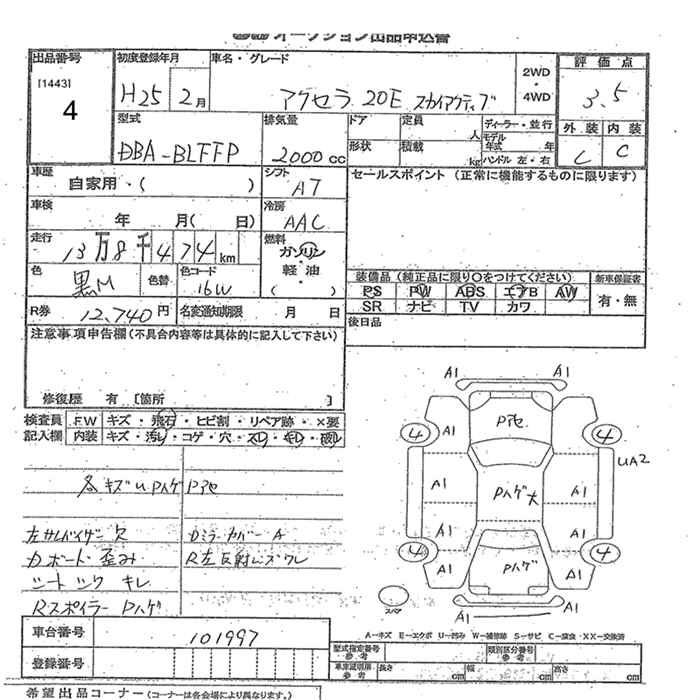 オークション出品申込書
出品番号
[1443]
4
初度登録年月
H25 2月
車名・グレード
アクセラ 20E スカイアクティブ
2WD
・
4WD
評価点
3.5
外装 内装
C C
型式
DBA-BLFFP
排気量
2000cc
ドア
形状
定員 人
積載 kg
ディーラー・並行
モデル年式 年
ハンドル 左・右
車歴
自家用・( )
シフト
AT
セールスポイント (正常に機能するものに限ります)
車検
年 月( 日)
冷房
AAC
走行
13万8千474km
燃料
ガソリン
・
軽・油
( )
色
黒M
色替
色コード
16W
装備品 (純正品に限り○をつけてください)
PS PW ABS エアB AW
SR ナビ TV カワ
新車保証書
有・無
R券 12,740円
名変通知期限 月 日
後日品
注意事項申告欄 (不具合内容等は具体的に記入して下さい)
修復歴 有 [箇所 ]
検査員記入欄
FW キズ・飛石・ヒビ割・リペア跡・×要
内装 キズ・汚レ・コゲ・穴・スレ・キレ・破レ
各キズU Pハゲ Pアセ
左サンバイザー欠 Dミラーカバー A
Dボード歪み R左反射レンズワレ
シート シワ キレ
Rスポイラー Pハゲ
A1 A1
Pアセ
4 A1 A1 4
UA2
A1 Pハゲ大 A1
A1 A1
4 A1 Pハゲ A1 4
スペア
A1 A1
A-キズ E-エクボ U-凹み W-補修跡 S-サビ C-腐食 XX-交換済
車台番号 101997
登録番号
型式指定番号
参考
類別区分番号
参考
車車証明用
参考
長さ cm 幅 cm 高さ cm
希望出品コーナー (コーナーは各会場により異なります。)